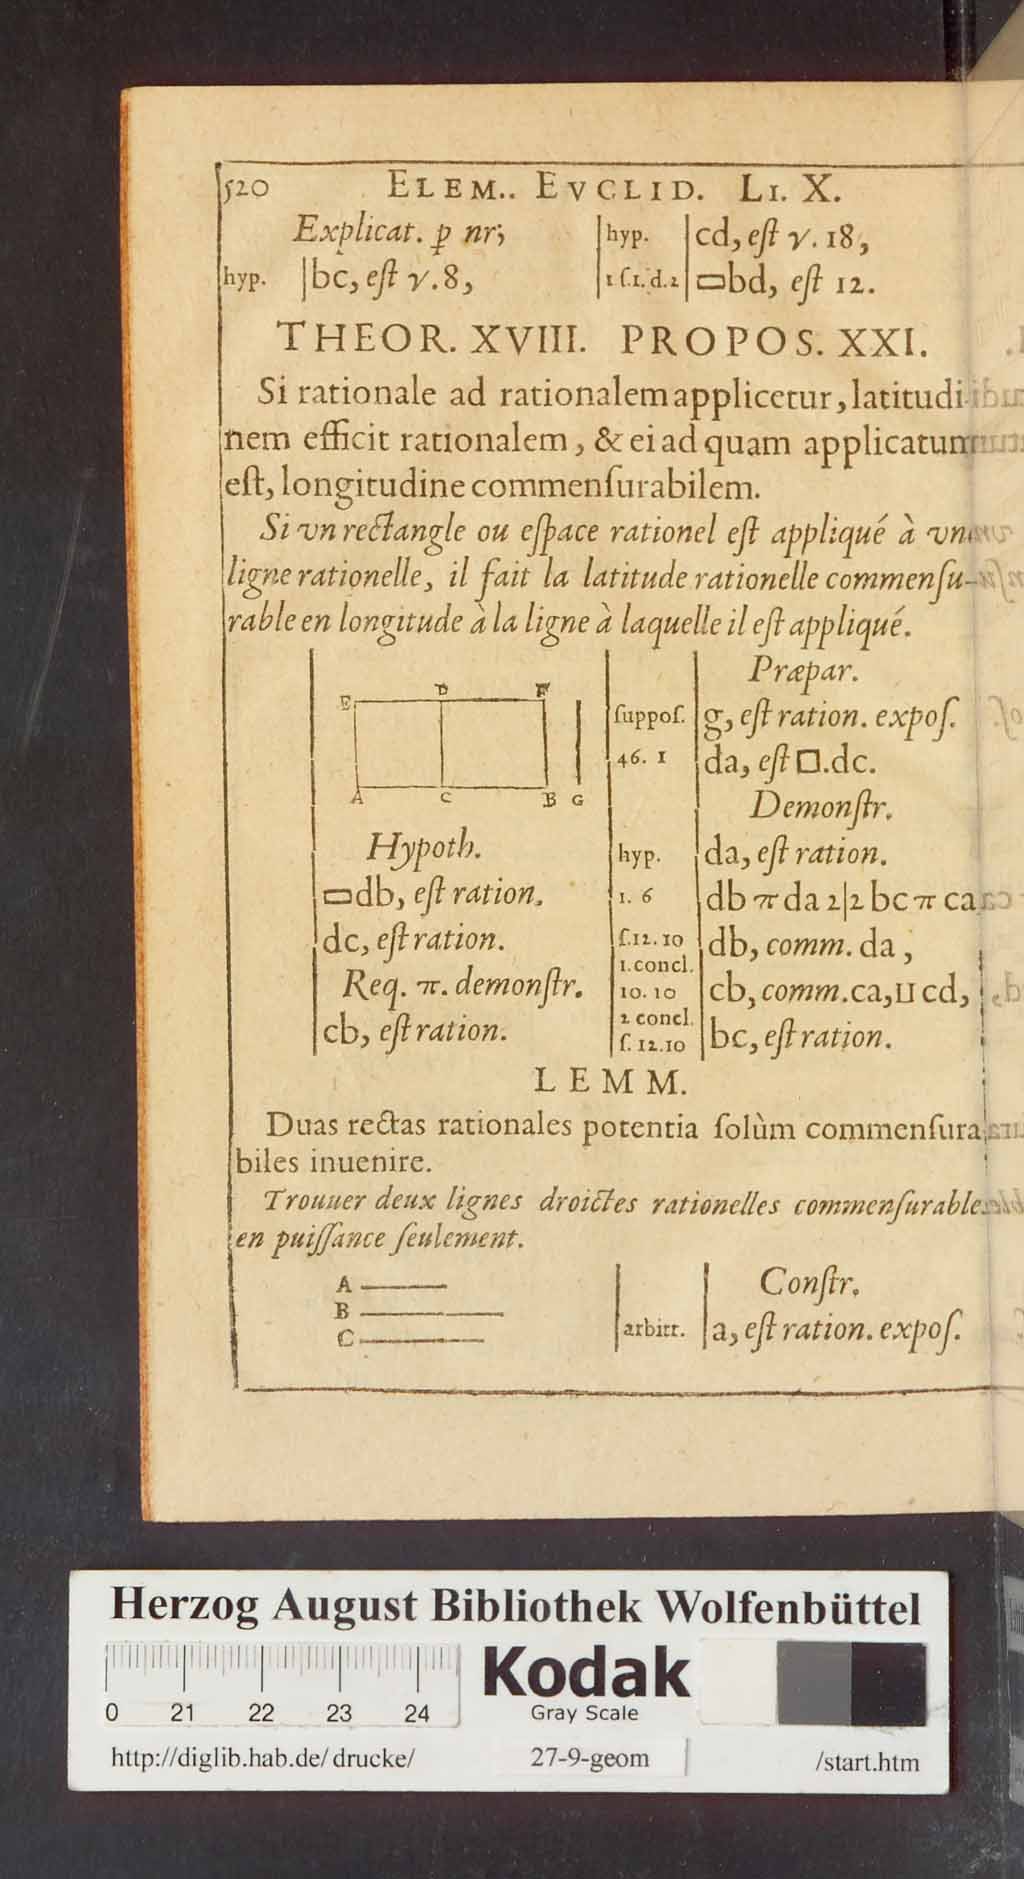 520 ELEM.. EVCLID. LI. X.
Explicat. p nr;
hyp. | bc, eſt γ. 8,
hyp. | cd, eſt γ. 18,
1 ſ.1. d.2 | ▭bd, eſt 12.
THEOR. XVIII. PROPOS. XXI.
Si rationale ad rationalem applicetur, latitudi-
nem efficit rationalem, & ei ad quam applicatum
eſt, longitudine commenſurabilem.
Si vn rectangle ou eſpace rationel eſt appliqué à vne
ligne rationelle, il fait la latitude rationelle commenſu-
rable en longitude à la ligne à laquelle il eſt appliqué.
E D F
A C B G
Hypoth.
▭db, eſt ration.
dc, eſt ration.
Req. π. demonſtr.
cb, eſt ration.
Præpar.
ſuppoſ. | g, eſt ration. expoſ.
46. 1 | da, eſt □.dc.
Demonſtr.
hyp. | da, eſt ration.
1. 6 | db π da 2|2 bc π ca
ſ.12.10 | db, comm. da,
1.concl.
10. 10 | cb, comm. ca, ⊔ cd,
2 concl.
ſ. 12.10 | bc, eſt ration.
LEMM.
Duas rectas rationales potentia ſolùm commenſura
biles inuenire.
Trouuer deux lignes droictes rationelles commenſurables
en puiſſance ſeulement.
A
B
C
Conſtr.
arbitr. | a, eſt ration. expoſ.
Herzog August Bibliothek Wolfenbüttel
0 21 22 23 24
Kodak
Gray Scale
http://diglib.hab.de/drucke/ 27-9-geom /start.htm